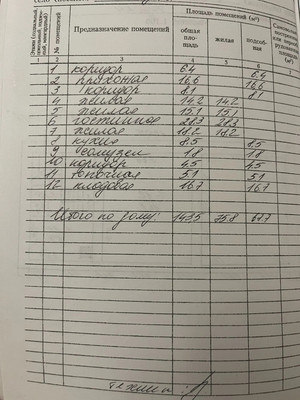 Площадь помещений (м²)
№ помещений
Предназначение помещений
общая пло-
щадь
жилая
подсоб-
ная
1 2 3 4 5 6 7
1 коридор 6.4 6.4
2 прихожая 16.6 16.6
3 коридор 8.1 8.1
4 жилая 14.2 14.2
5 жилая 15.1 15.1
6 гостинная 28.3 28.3
7 жилая 18.2 18.2
8 кухня 8.5 8.5
9 санузел 1.8 1.8
10 коридор 4.5 4.5
11 топочная 5.1 5.1
12 кладовая 16.7 16.7
Итого по дому: 143,5 75.8 67.7